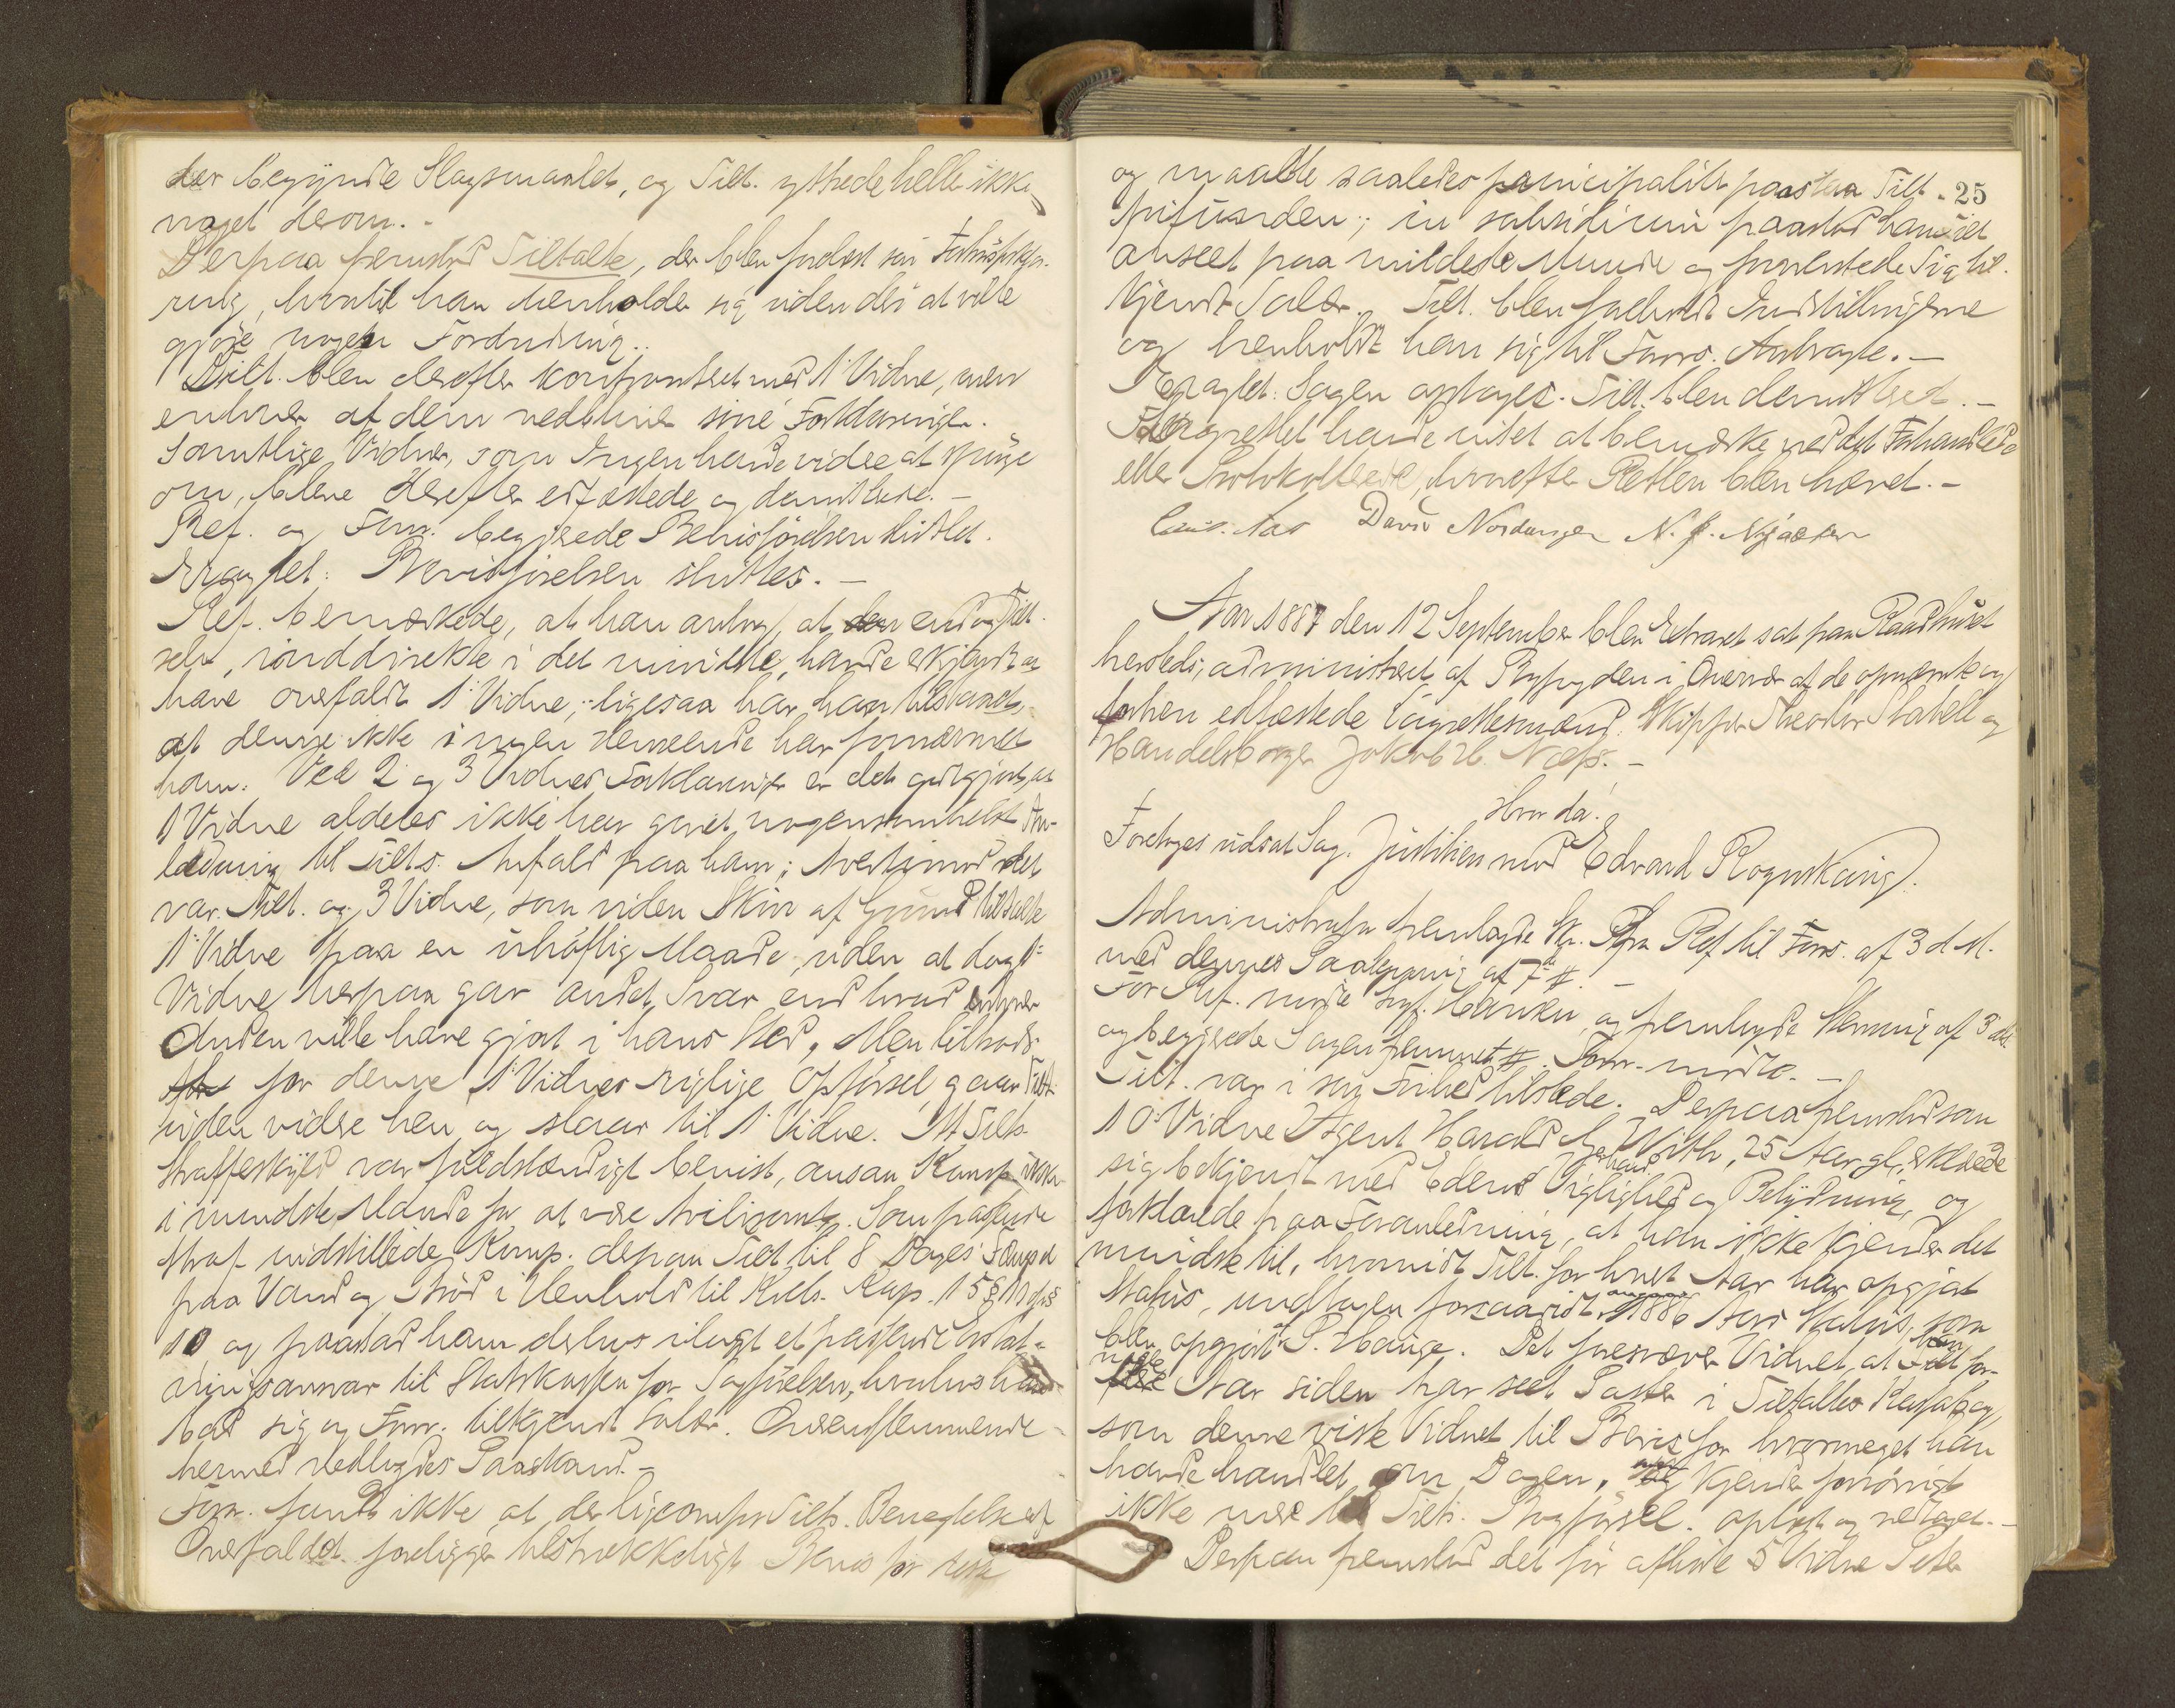 der begynde Slagsmaalet, og Tilt. yttrede heller ikke
noget derom. -
Derpaa fremstod Tiltalte, der blev forelæst sin Forhørsforkla-
ring, hvortil han henholder sig uden des at ville
gjøre nogen Forandring..
Tilt. blev derefter konfronteret med 1 Vidne, men
enhver af dem vedblive sine Forklaringer.
Samtlige Vidner, som Ingen havde videre at spørge
om, bleve derefter edfæstede og demitterede. -
Ref. og Forsv. begjærede Bevisførelsen sluttet.
Eragtet: Bevisførelsen sluttes. -
Ref. bemærkede, at han antog, at endog Tilt.
selv, inddirekte i det mindste, havde erkjendt at
have overfaldt 1' Vidne; ligesaa har han tilstaaet
at denne ikke i nogen Henseende har fornærmet
ham. Ved 2' og 3 Vidnes Forklaringer er det godtgjort, at
1 Vidne aldeles ikke har givet nogensomhelst An-
ledning til Tilts. Anfald paa ham; tvertimod det
var Tilt. og 3 Vidne, som uden Skin af Grund tiltalte
1' Vidne paa en uhøflig Maade, uden at dog 1'
Vidne herpaa gav andet Svar end hvad enhver
Anden ville have gjort i hans Sted. Men tiltrods
for denne 1' Vidnes rigtige Opførsel gaar Tilt.
uden videre hen og slaar til 1' Vidne. At Tilts.
Straffeskyld var fuldstændigt bevist, ansaa ikke
i mindste Maade for at være tvilsomt. Som passende
Straf indstillede derpaa Tilt til 8 Dages Fængsel
paa Vand og Brød i Henhold til Krls. Kap. 15
10 og paastod ham derhos ilagt et passende Erstat-
ningsansvar til Statskassen for Sagførelsen, hvorhos han
bad sig og Forsv. tilkjendt Salær. Overensstemmende
hermed nedlagdes Paastand. -
Forsv. fandt ikke at der ligeoverfor Tilts. Benægtelse af
Overfaldet foreligger tilstrækkeligt Bevis for dette
og maatte saaledes principalitet paastaa Tilt. 25
frifunden; in subsidium paastod han Tilt
anseet paa mildeste Maade og paastod sig til-
kjendt Salær. Tilt. blev foreholdt Indstillingerne
og henholdt han sig til Forsvs. Andragte. -
Eragtet: Sagen optages. Tilt. blev demitteret. -
Lagrettet havde intet at bemærke ved det Forhandlede
eller Protokollerede, hvorefter Retten blev hævet. -
David Nordanger N. J. Nyjæter
Aar 1887 den 12 September blev Extraret sat paa Raadhuset
hersteds, administreret af Byfogden i Overvær af de opnævnte og
forhen edfæstede Lagrettesmænd Skipper Theodor Stabell og
Handelsborger Jakob H. Næss. -
Hvor da:
Foretoges udsat Sag. Justitien mod Edvard Rognskaug.
Administrator fremlagde Skr. fra Ref til Forsv. af 3 d.M.
med dennes Paategning af 7 .
For Ref. mødte Hanken og fremlagde Stævning af 3 dM
og begjærede Sagen fremmet. Forsv. mødte. -
Tilt. var i sin Frihed tilstede. Derpaa fremstod som
10' Vidne Agent Harald With, 25 Aar gl, erklærede
sig bekjendt med Edens Vigtighed og Betydning, og
forklarede paa Foranledning, at han ikke kjender det
mindste til, hvorvidt Tilt. for hvert Aar har opgjort
Status, undtagen forsaavidt angaar 1886 Aars Status, som
blev opgjort P. Hauge. Det forekommer Vidnet, at han for
nogle Aar siden har seet Poster i Tiltaltes Kassabog,
som denne viste Vidnet til Bevis for hvormeget han
havde handlet om Dagen. kjender forøvrigt
ikke mere til Tilts. Bogførsel. Oplæst og vedtaget. -
Derpaa fremstod det før afhørte 5 Vidne Peter